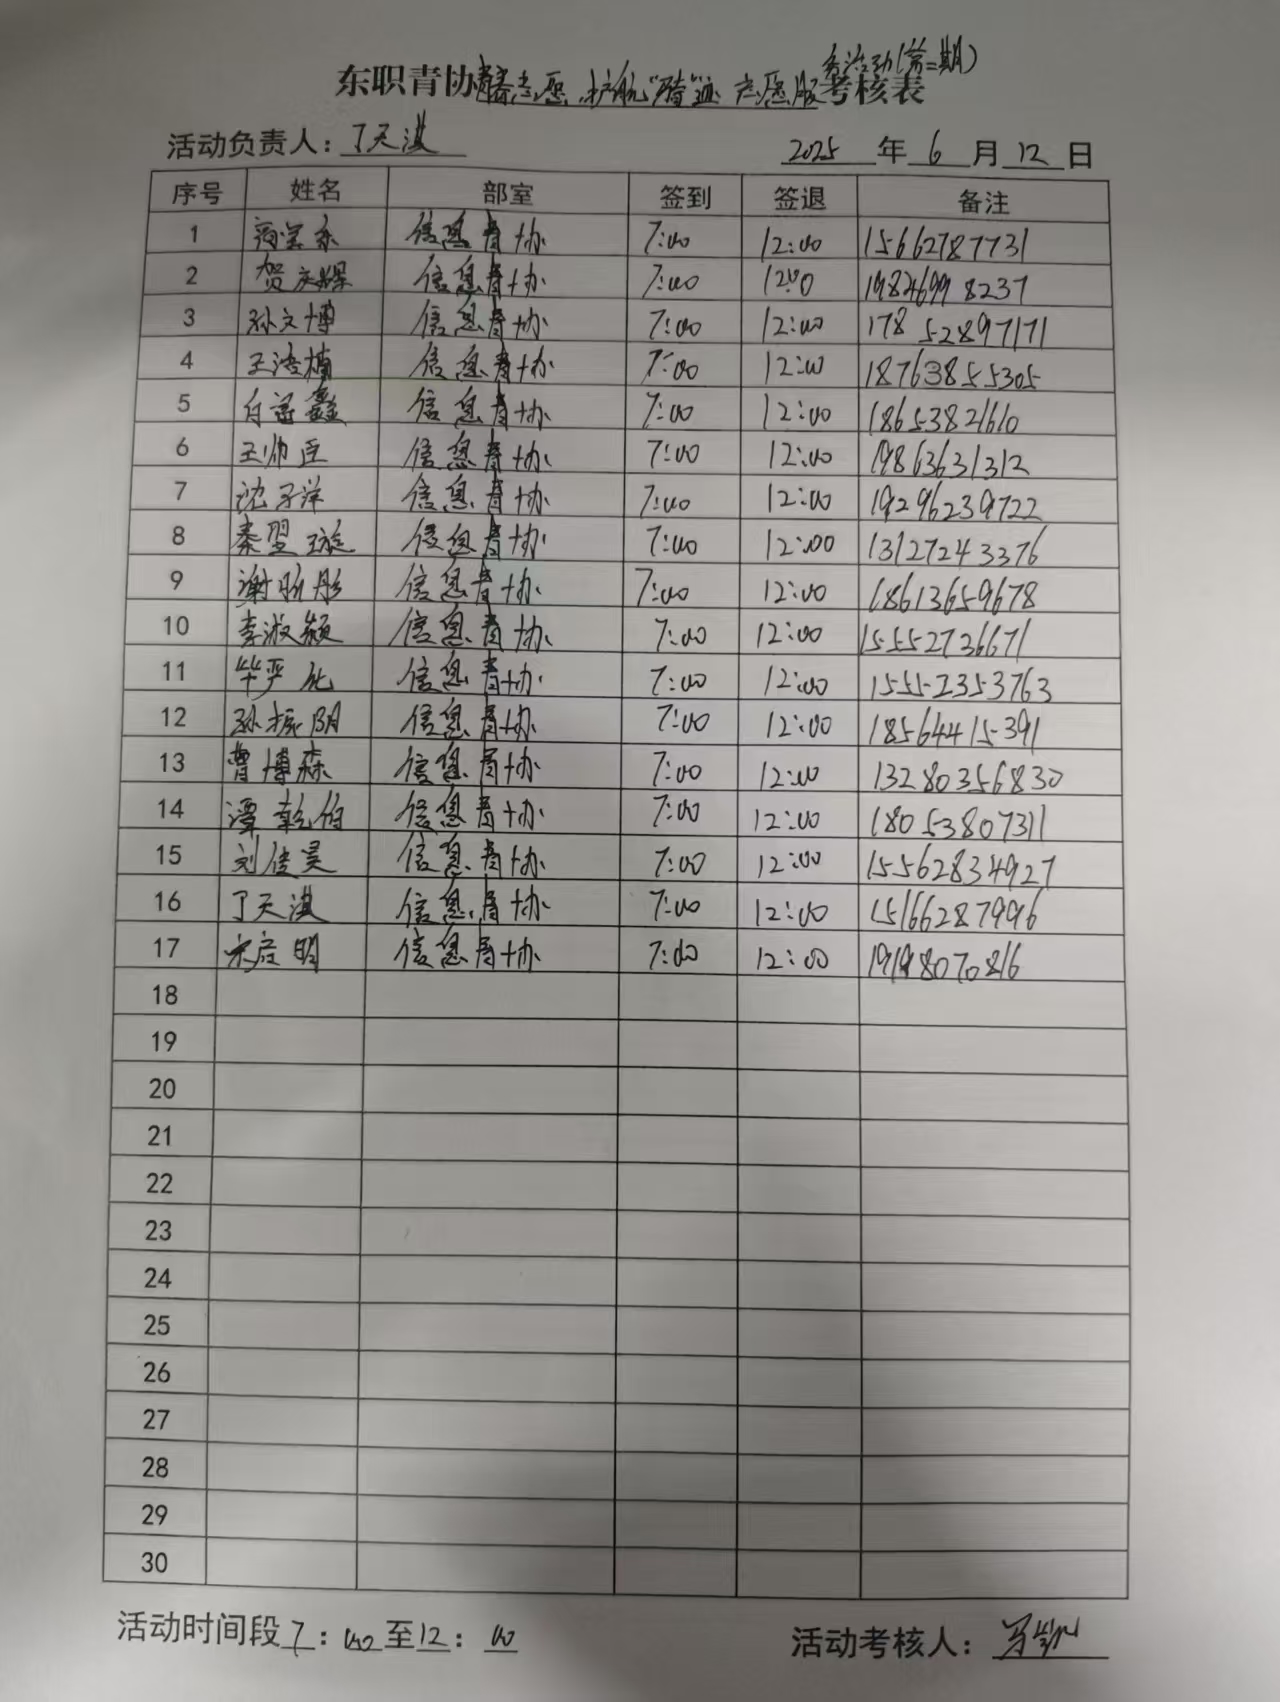 东职青协青春志愿 护航"骑"迹 志愿服务活动(第二期)考核表
活动负责人：丁天淇 2025 年 6 月 12 日
序号 姓名 部室 签到 签退 备注
1 信息青协 7:00 12:00 15662787731
2 贺庆娜 信息青协 7:00 12:00 19846998237
3 孙文博 信息青协 7:00 12:00 17852897171
4 王浩楠 信息青协 7:00 12:00 18763855305
5 鑫 信息青协 7:00 12:00 18653821610
6 王帅臣 信息青协 7:00 12:00 19863631312
7 沈子洋 信息青协 7:00 12:00 19296239722
8 秦翌璇 信息青协 7:00 12:00 13127243376
9 谢昕彤 信息青协 7:00 12:00 18613659678
10 李淑颖 信息青协 7:00 12:00 15552736671
11 毕严化 信息青协 7:00 12:00 15552353763
12 孙振阴 信息青协 7:00 12:00 18564415391
13 曹博森 信息青协 7:00 12:00 13280356830
14 谭乾伯 信息青协 7:00 12:00 18053807311
15 刘俊昊 信息青协 7:00 12:00 15562834927
16 丁天淇 信息青协 7:00 12:00 15166287996
17 宋启明 信息青协 7:00 12:00 19198070816
18
19
20
21
22
23
24
25
26
27
28
29
30
活动时间段 7：00 至 12：00 活动考核人：